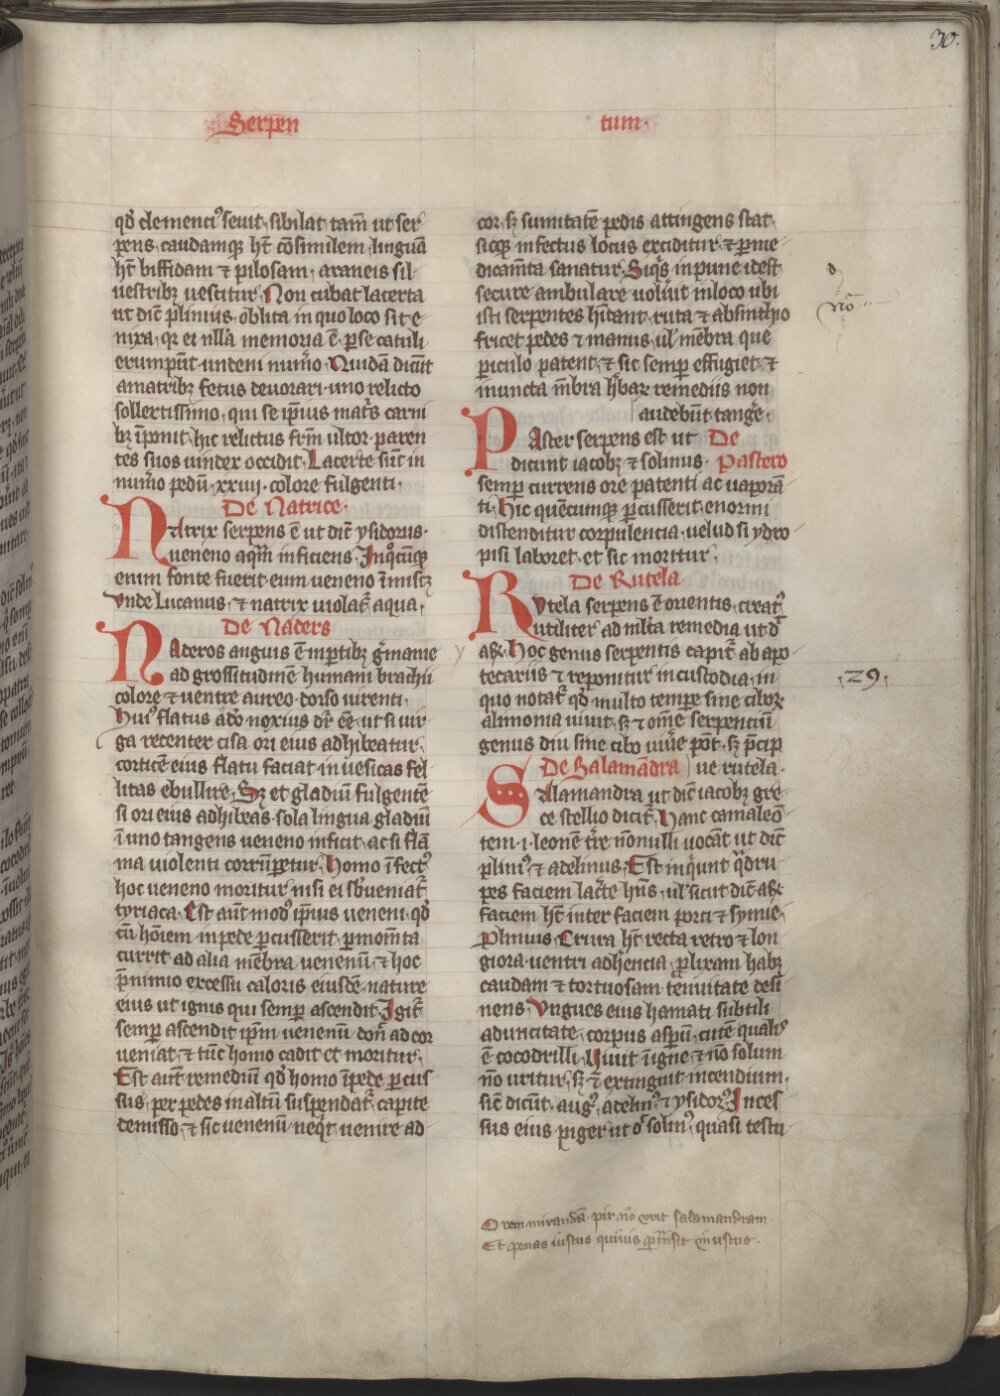 30.
Serpen
tum.
qd̓ clemenciꝰ seuit. sibilat tam̄ ut ser
pens. caudamqꝫ hт̄ cōsimilem. linguā
ht̄ biffidam ⁊ pilosam. araneis sil
uestribꝫ uescitur. Non cubat lacerta
ut dicit̄ plinius. oblita in quo loco sit e
nixa. qr ei nll̓a memoria ē. per se catuli
erumpūt. undeni num̓o. Quidā dicūt
a matribꝫ fetus deuorari. uno relicto
sollertissimo. qui se ip̄ius matr̄s carni
bꝫ īponit. hic relictus frm̄ ultor. paren
tes suos uindex occidit. Lacerte sūt in
num̓o pedū. xxiiij. colore fulgenti.
De Natrice.
Natrix serpens ē ut dic̄ ysidorus.
ueneno aqm̄ inficiens. In qcūqꝫ
enim fonte fuerit. eum ueneno īmiscꝫ
Vnde Lucanus. ⁊ natrix uiolat̄ aqua.
De Naders
Naderos anguis ē in ꝑtibꝫ gͥmanie
ad grossitudinē humani brachij
colore ⁊ uentre aureo. dorso uirenti.
Huiꝰ flatus ado noxius dr̄ ēē. ut si uir
ga recenter cisa ori eius adhibeatur.
corticē eius flatu faciat in uesicas fel
litas ebullire. Sꝫ et gladiū fulgentē
si ori eius adhibeas. sola lingua gladiū
ī uno tangens ueneno inficit. ac si flā
ma uiolenti corrūpetur. Homo īfectꝰ
hoc ueneno moritur. nisi ei sb̓ueniat̄
tyriaca. Est aūt modꝰ ip̄ius ueneni. qd̓
cū hōiem in pede ꝑcusserit. ꝑ mom̄ta
currit ad alia mēbra uenenū. ⁊ hoc
p̄ nimio excessu caloris eiusdē nature
eius ut ignis qui semꝑ ascendit. Igit̄
semꝑ ascendit ip̄m uenenū don̄ ad cor
ueniat. ⁊ tūc homo cadit et moritur.
Est aūt remediū qd̓ homo ī pede ꝑcus
sus. per pedes in altū suspendat̄. capite
demisso. ⁊ sic uenenū neq̄t uenire ad
cor. sꝫ sumitatē pedis attingens stat.
sicqꝫ infectus locus exciditur. ⁊ ꝑ me
dicam̄ta sanatur. Siqͥs inpune id est
secure ambulare uolūit in loco ubi
isti serpentes hītant. ruta ⁊ absinthio
fricet pedes ⁊ manus. ul̓ mēbra que
periculo patent. ⁊ sic semꝑ effugiet. ⁊
inuncta mēbra hͥbaꝝ remedijs non
audebūt tangͤe.
Paster serpens est ut
De
dicunt iacobꝫ ⁊ solinus.
Pastero
semꝑ currens ore patenti ac uaporā
ti. Hic quēcumqꝫ ꝑcusserit. enormi
distenditur corpulencia. uelud si ydro
pisi laboret. et sic moritur.
De Rutela
Rvtela serpens ē orientis. creat̄
utiliter ad ml̓ta remedia ut d̓
aſꝝ. Hoc genus serpentis capit̄ ab apo
tecarijs ⁊ reponitur in custodia. in
quo notat̄ qd̓ multo tempore sine ciboꝝ
alimonia uiuit. sꝫ ⁊ om̄e serpenciū
genus diu sine cibo uiūe pōt. sꝫ p̄cip
De Salamādra
ue rutela.
Salamandra ut dic̄ iacobꝫ gre
ce stellio dicit̄. Hanc camaleō
tem .i. leonē tr̄re nōnulli uocāt ut dic̄
pliniꝰ ⁊ adelinus. Est inq̄unt qͣdru
pes faciem lac̄te hn̄s. ul̓ sicut dic̄ aſꝝ
faciem ht̄ inter faciem porci ⁊ symie.
Plinius. Crura ht̄ recta retro ⁊ lon
giora. uentri adhencia. prolixam habꝫ
caudam ⁊ tortuosam tenuitate desi
nens. Vngues eius hamati subtili
aduncitate. corpus asꝑū. cute qualiꝰ
ē cocodrilli. Viuit ī igne. ⁊ nō solum
nō uritur. sꝫ ⁊ extinguit incendium.
sic̄ dicūt. augꝰ. adelinꝰ. ⁊ ysidorꝰ. Inces
sus eius piger ut d̓ solinꝰ. quasi testu
nō
.29.
O rem mirandā. pir nō vrit salamandram
Et penas iustus quiuis ꝑtrāsit inustus.